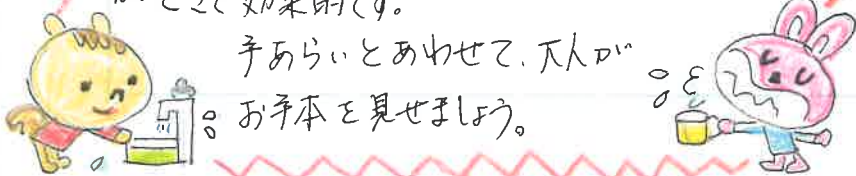 ができて効果的です。
手あらいとあわせて、大人が
お手本を見せましょう。